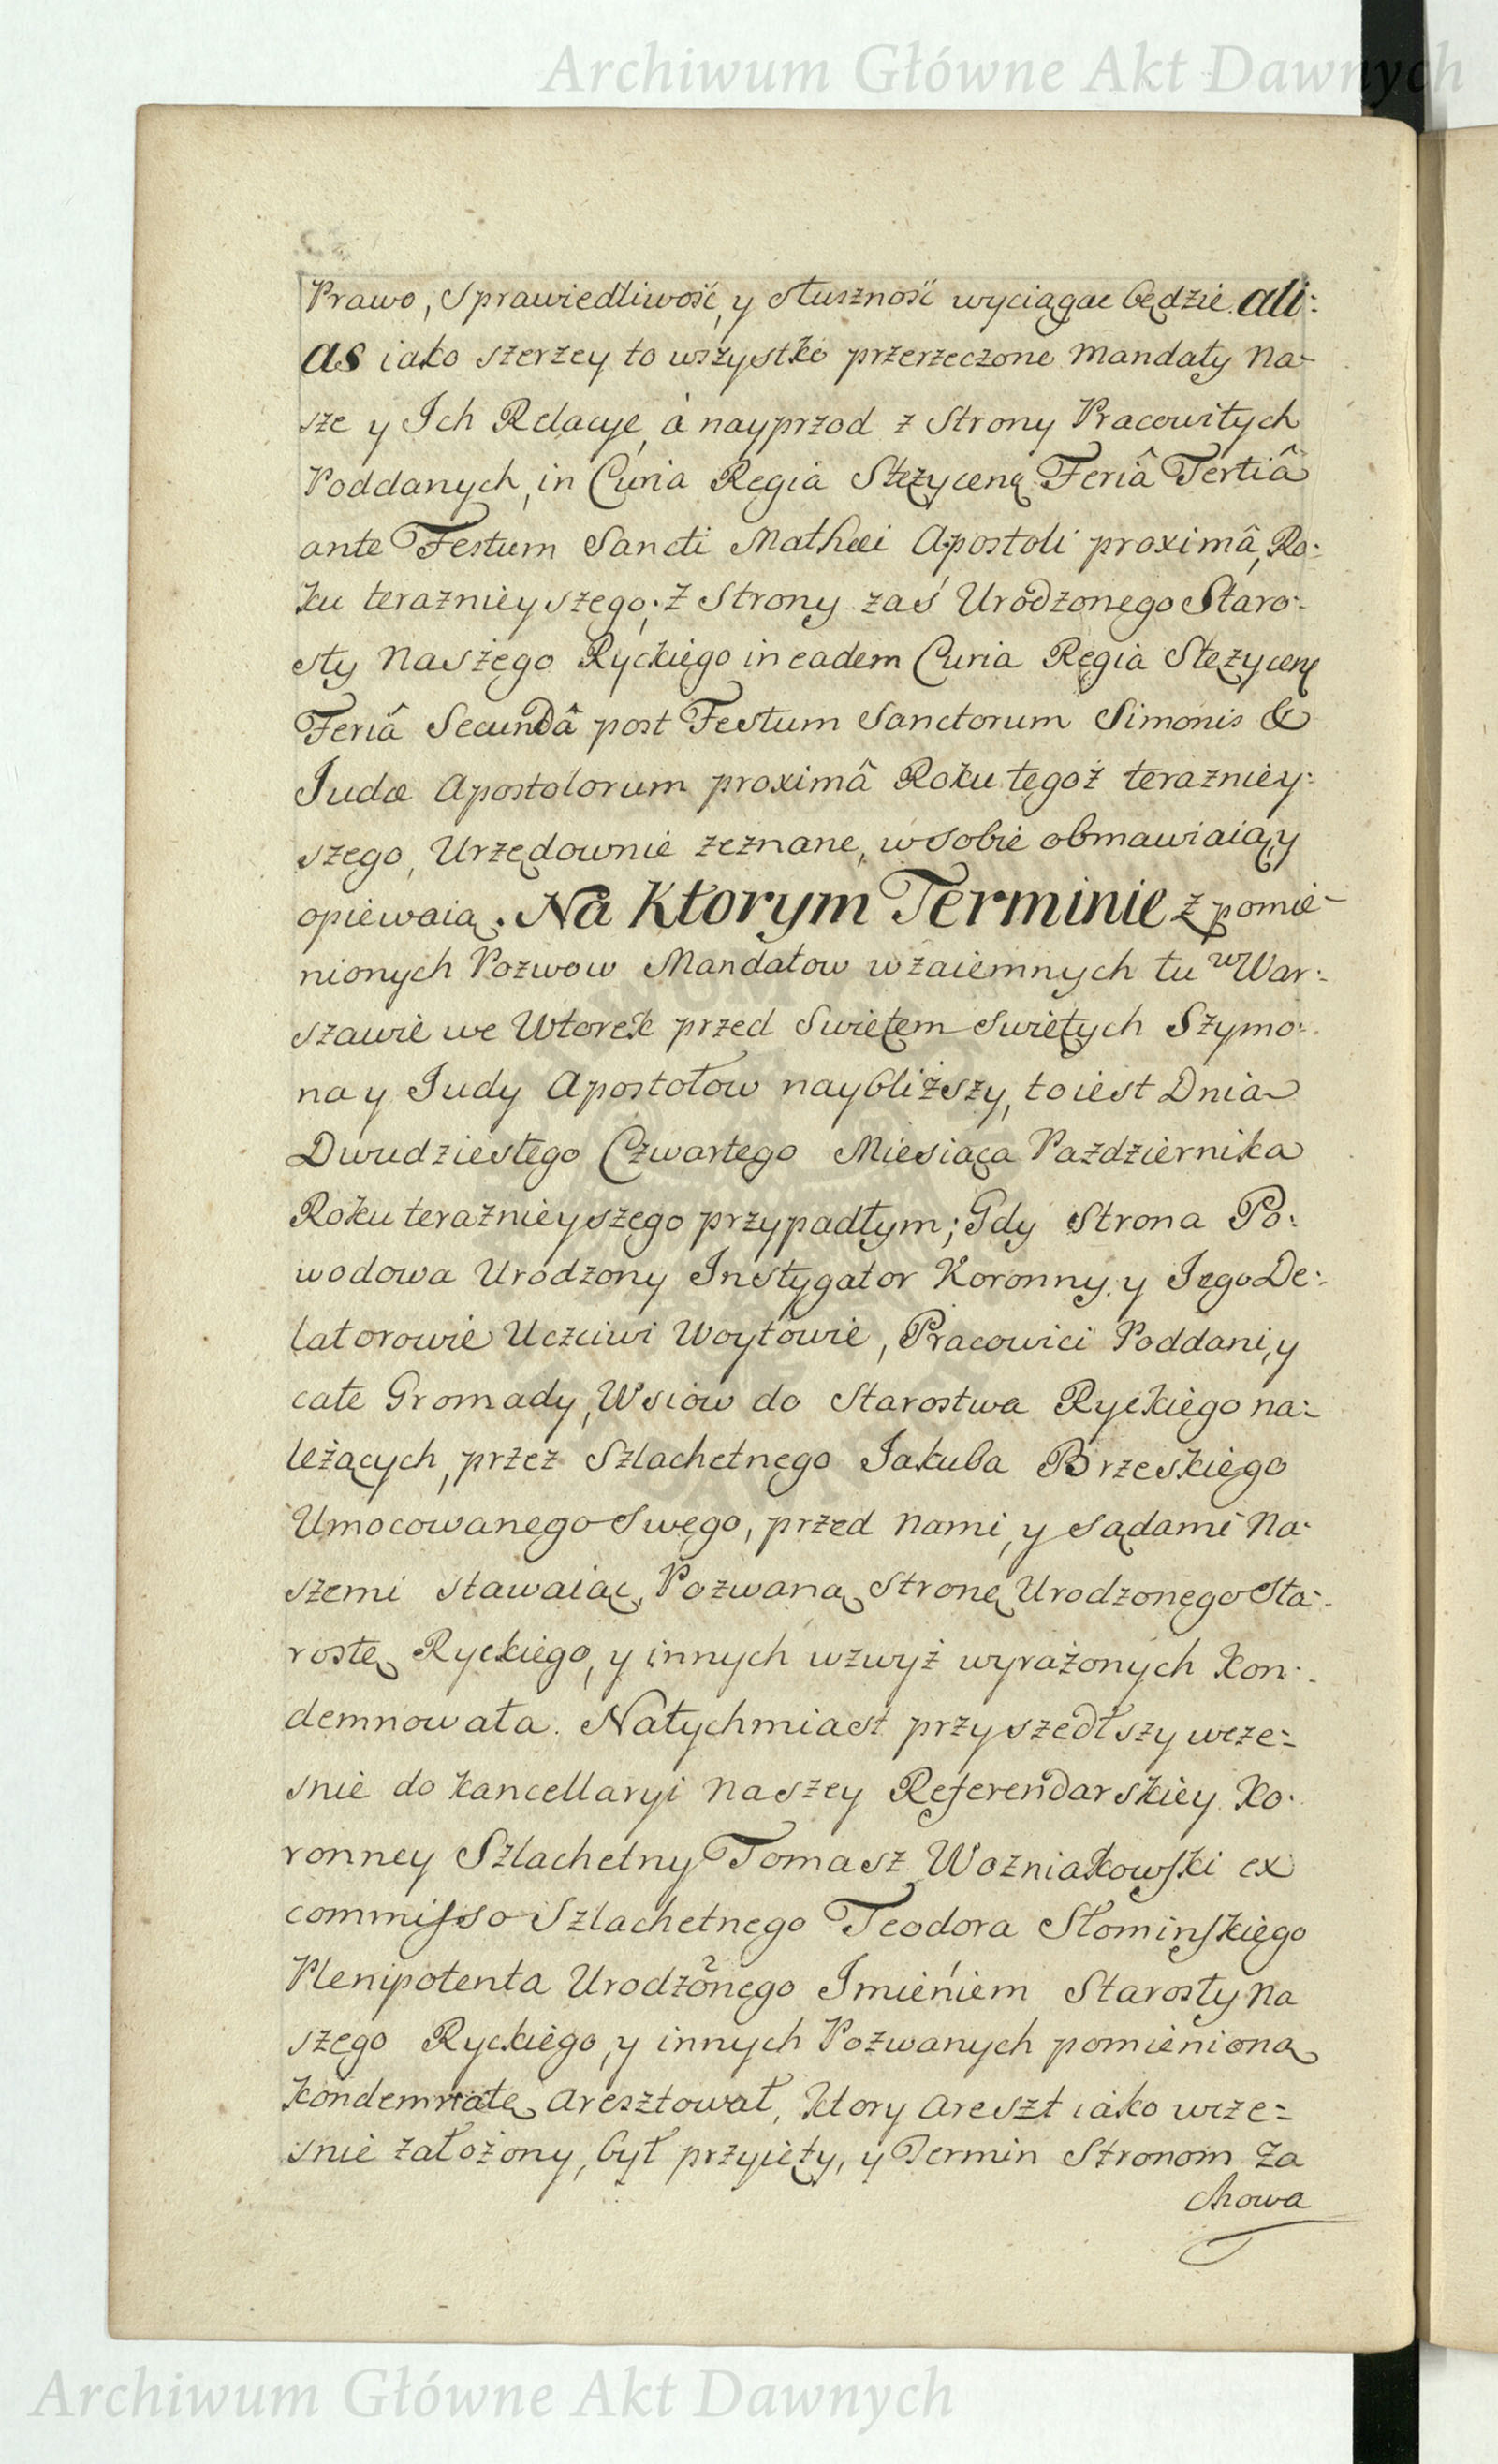 Archiwum Główne Akt Dawnych
Prawo, Sprawiedliwość, y słuszność wyciągac będzie. ali:
as iako szerzey to wszystko przerzeczone Mandaty Na-
sze y Ich Relacye, à nayprzod z Strony Pracowitych
Poddanych, in Curia Regia Stężycenę Feriâ Tertiâ
ante Festum Sancti Mathæi Apostoli proximâ, Ro:
ku teraznieyszego; z Strony zaś Urodzonego Staro:
sty Naszego Ryckiego in eadem Curia Regia Stężycenę
Feriâ Secundâ post Festum Sanctorum Simonis &
Judæ Apostolorum proximâ Roku tegoż terazniey:
szego, Urzędownie zeznane, w sobie obmawiaią, y
opiewaią. Na Ktorym Terminie z pomie-
nionych Pozwow Mandatow wzaiemnych tu w War:
szawie we Wtorek przed Swiętem Swiętych Szymo:
na y Judy Apostołow naybliższy, to iest Dnia
Dwudziestego Czwartego Miesiąca Pazdziernika
Roku teraznieyszego przypadłym; Gdy Strona Po:
wodowa Urodzony Instygator Koronny, y Jego De:
latorowie Uczciwi Woytowie, Pracowici Poddani, y
całe Gromady, Wsiow do Starostwa Ryckiego na:
leżących, przez Szlachetnego Jakuba Brzeskiego
Umocowanego Swego, przed Nami, y Sądami Na:
szemi stawaiąc, Pozwaną Stronę Urodzonego Sta:
rostę Ryckiego, y innych wzwyż wyrażonych kon:
demnowała. Natychmiast przyszedłszy wcze:
snie do Kancellaryi Naszey Referendarskiey Ko:
ronney Szlachetny Tomasz Wozniakowski ex
commisso Szlachetnego Teodora Słominskiego
Plenipotenta Urodzonego Imieniem Starosty Na
szego Ryckiego, y innych Pozwanych pomienioną
Kondemnatę aresztował, ktory areszt iako wcze:
snie założony, był przyięty, y Termin Stronom za
chowa
Archiwum Główne Akt Dawnych